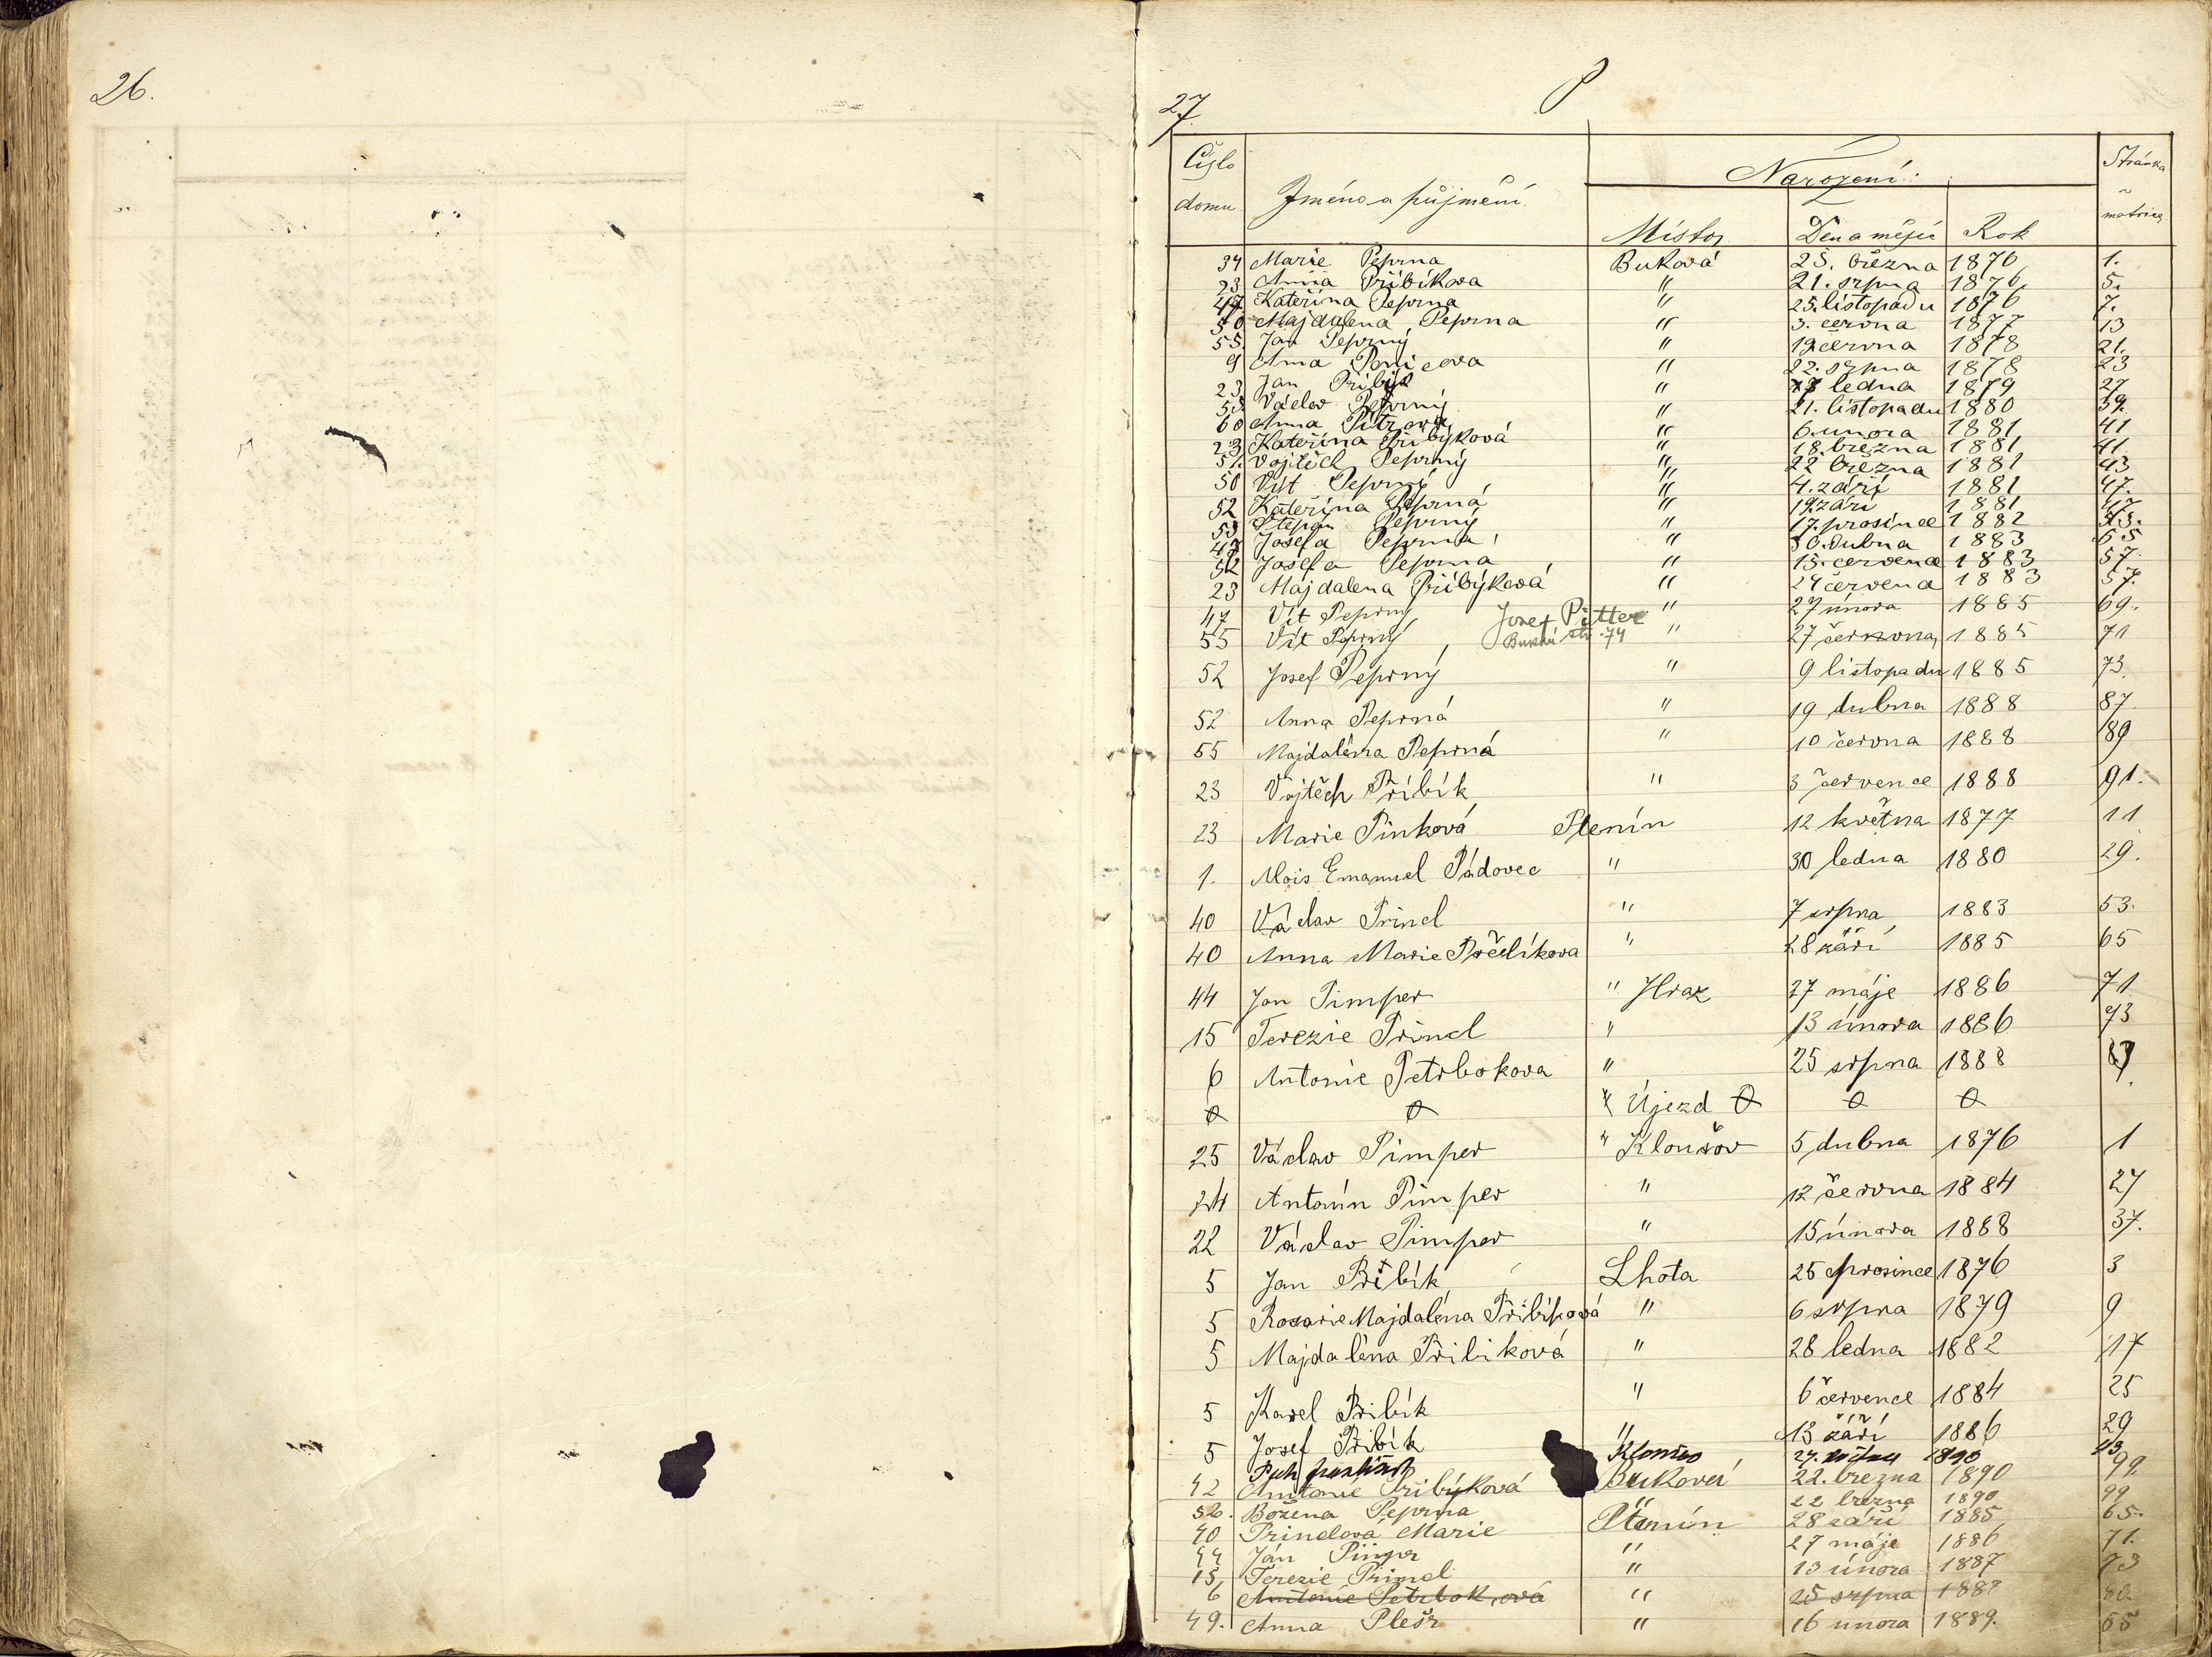 26.
27
P
Číslo domu Jméno a příjmení. Narození: Stránka matriky
Místo Den a měsíc Rok
34 Marie Peprna Buková 25. března 1876 1.
23 Anna Přibíkova " 21. srpna 1876. 5.
47 Kateřina Peprna " 25. listopadu 1876 7.
50 Majdalena Peprna " 3. června 1877 13
55. Jan Peprný " 19 června 1878 21.
9 Anna " 22. srpna 1878 23
23 Jan Přibík " ledna 1879 27
Václav Peprný " 21. listopadu 1880 39.
60 Anna " 6. unora 1881 41
23 Kateřina Přibýková " 18. března 1881 41.
51. Vojtěch Peprný " 22 března 1881 43
50 Vít Peprný " 4. září 1881 47.
52 Kateřina Peprná " 19 září 1881 47
53 Štěpán Peprný " 17. prosince 1882
47 Josefa Peprná " 30. dubna 1883 55
52 Josefa Peprna " 15. července 1883 57.
23 Majdalena Přibýková " 24 července 1883 57.
47 Vít Peprný Josef Pitter " 27 února 1885 69.
55 Vít Peprný, str. 74 " 27 června 1885 71
52 Josef Peprný " 9 listopadu 1885 73.
52 Anna Peprná " 19 dubna 1888 87.
55 Majdaléna Peprná " 10 června 1888 89
23 Vojtěch Přibík " 3 července 1888 91.
23 Marie Pinková Ptenín 12 května 1877 11
1. Alois Emanuel Pádovec " 30 ledna 1880 29.
40 Václav Princl " 7 srpna 1883 53.
40 Anna Marie " 28 září 1885 65
44 Jan Pimper " Hráz 27 máje 1886 71
15 Terezie Princl " 13 února 1886 73
6 Antonie Petrboková " 25 srpna 1888
0 0 " Újezd 0 0 0
25 Václav Pimper " Kloušov 5 dubna 1876 1
24 Antonín Pimper " 12 června 1884 27
22 Václav Pimper " 15 února 1888 37.
5 Jan Přibík Lhota 25 prosince 1876 3
5 Rosarie Majdaléna Přibíková " 6 srpna 1879 9
5 Majdaléna Přibiková " 28 ledna 1882 17
5 Karel Přibík " 6 července 1884 25
5 Josef Přibík " 13 září 1886 29
27. 1890
42 Antonie Přibýková Buková 22. března 1890 99.
52. Božena Peprna " 22 března 1890 99
40 Princlová Marie Ptenín 28 září 1885 65.
44 Ján Pimpr " 27 máje 1886 71.
15. Terezie Princl " 13 února 1887 73
6 Antonie Petrboková " 25 srpna 1888
49. Anna Plešr " 16 unora 1889. 65